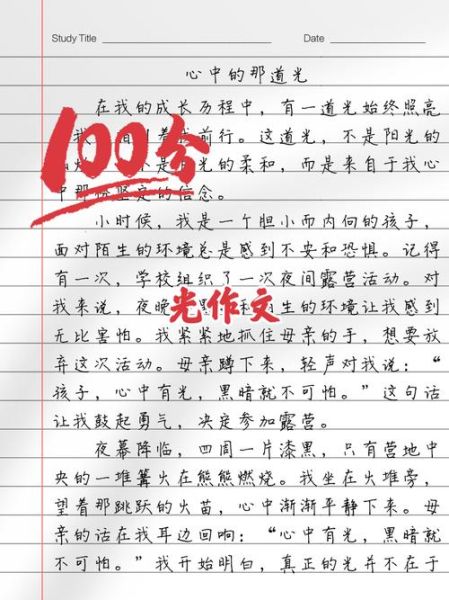 Study Title Date
心中的那道光
在我的成长历程中，有一道光始终照亮
我 着 前行。这道光，不是阳光的
不是 光的柔和，而是来自于我心
中那 坚定的信念。
100分
小时候，我是一个胆小而内向的孩子，
面对陌生的环境总是感到不安和恐惧。记得
有一次，学校组织了一次夜间露营活动。对
我来说，夜晚 黑 和 生的环境让我感到
光作文
无比害怕。我紧紧地抓住母亲的手，想要放
弃这次活动。母亲蹲下来，轻声对我说：“
孩子，心中有光，黑暗就不可怕。”这句话
让我鼓起勇气，决定参加露营。
夜幕降临，四周一片漆黑，只有营地中
央的一堆篝火在熊熊燃烧。我坐在火堆旁，
望着那跳跃的火苗，心中渐渐平静下来。母
亲的话在我耳边回响：“心中有光，黑暗就
不可怕。”我开始明白，真正的光并不在于